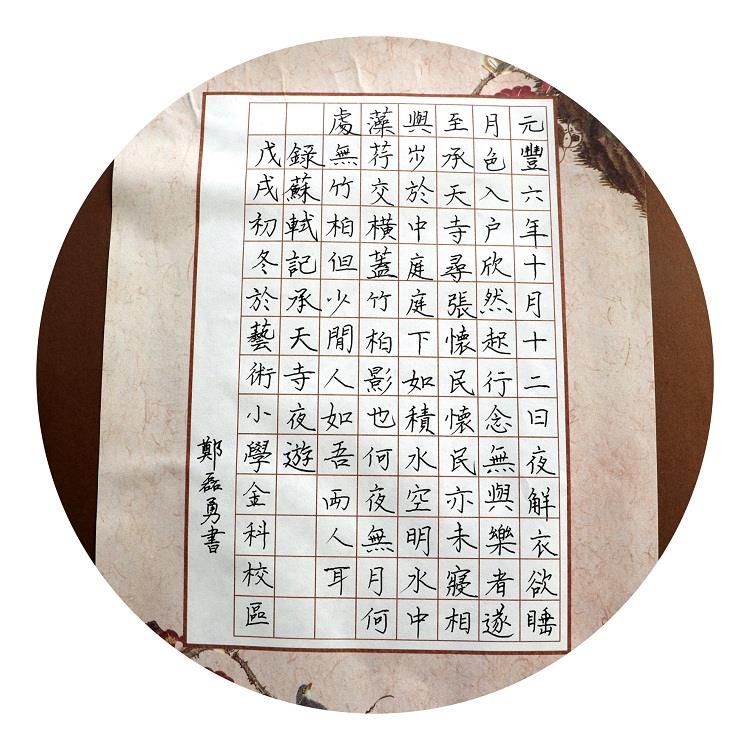 元豐六年十月十二日夜解衣欲睡
月色入户欣然起行念無與樂者遂
至承天寺尋張懷民懷民亦未寢相
與步於中庭庭下如積水空明水中
藻荇交橫蓋竹柏影也何夜無月何
處無竹柏但少閒人如吾兩人耳
錄蘇軾記承天寺夜遊
戊戌初冬於藝術小學金科校區
鄭磊勇書